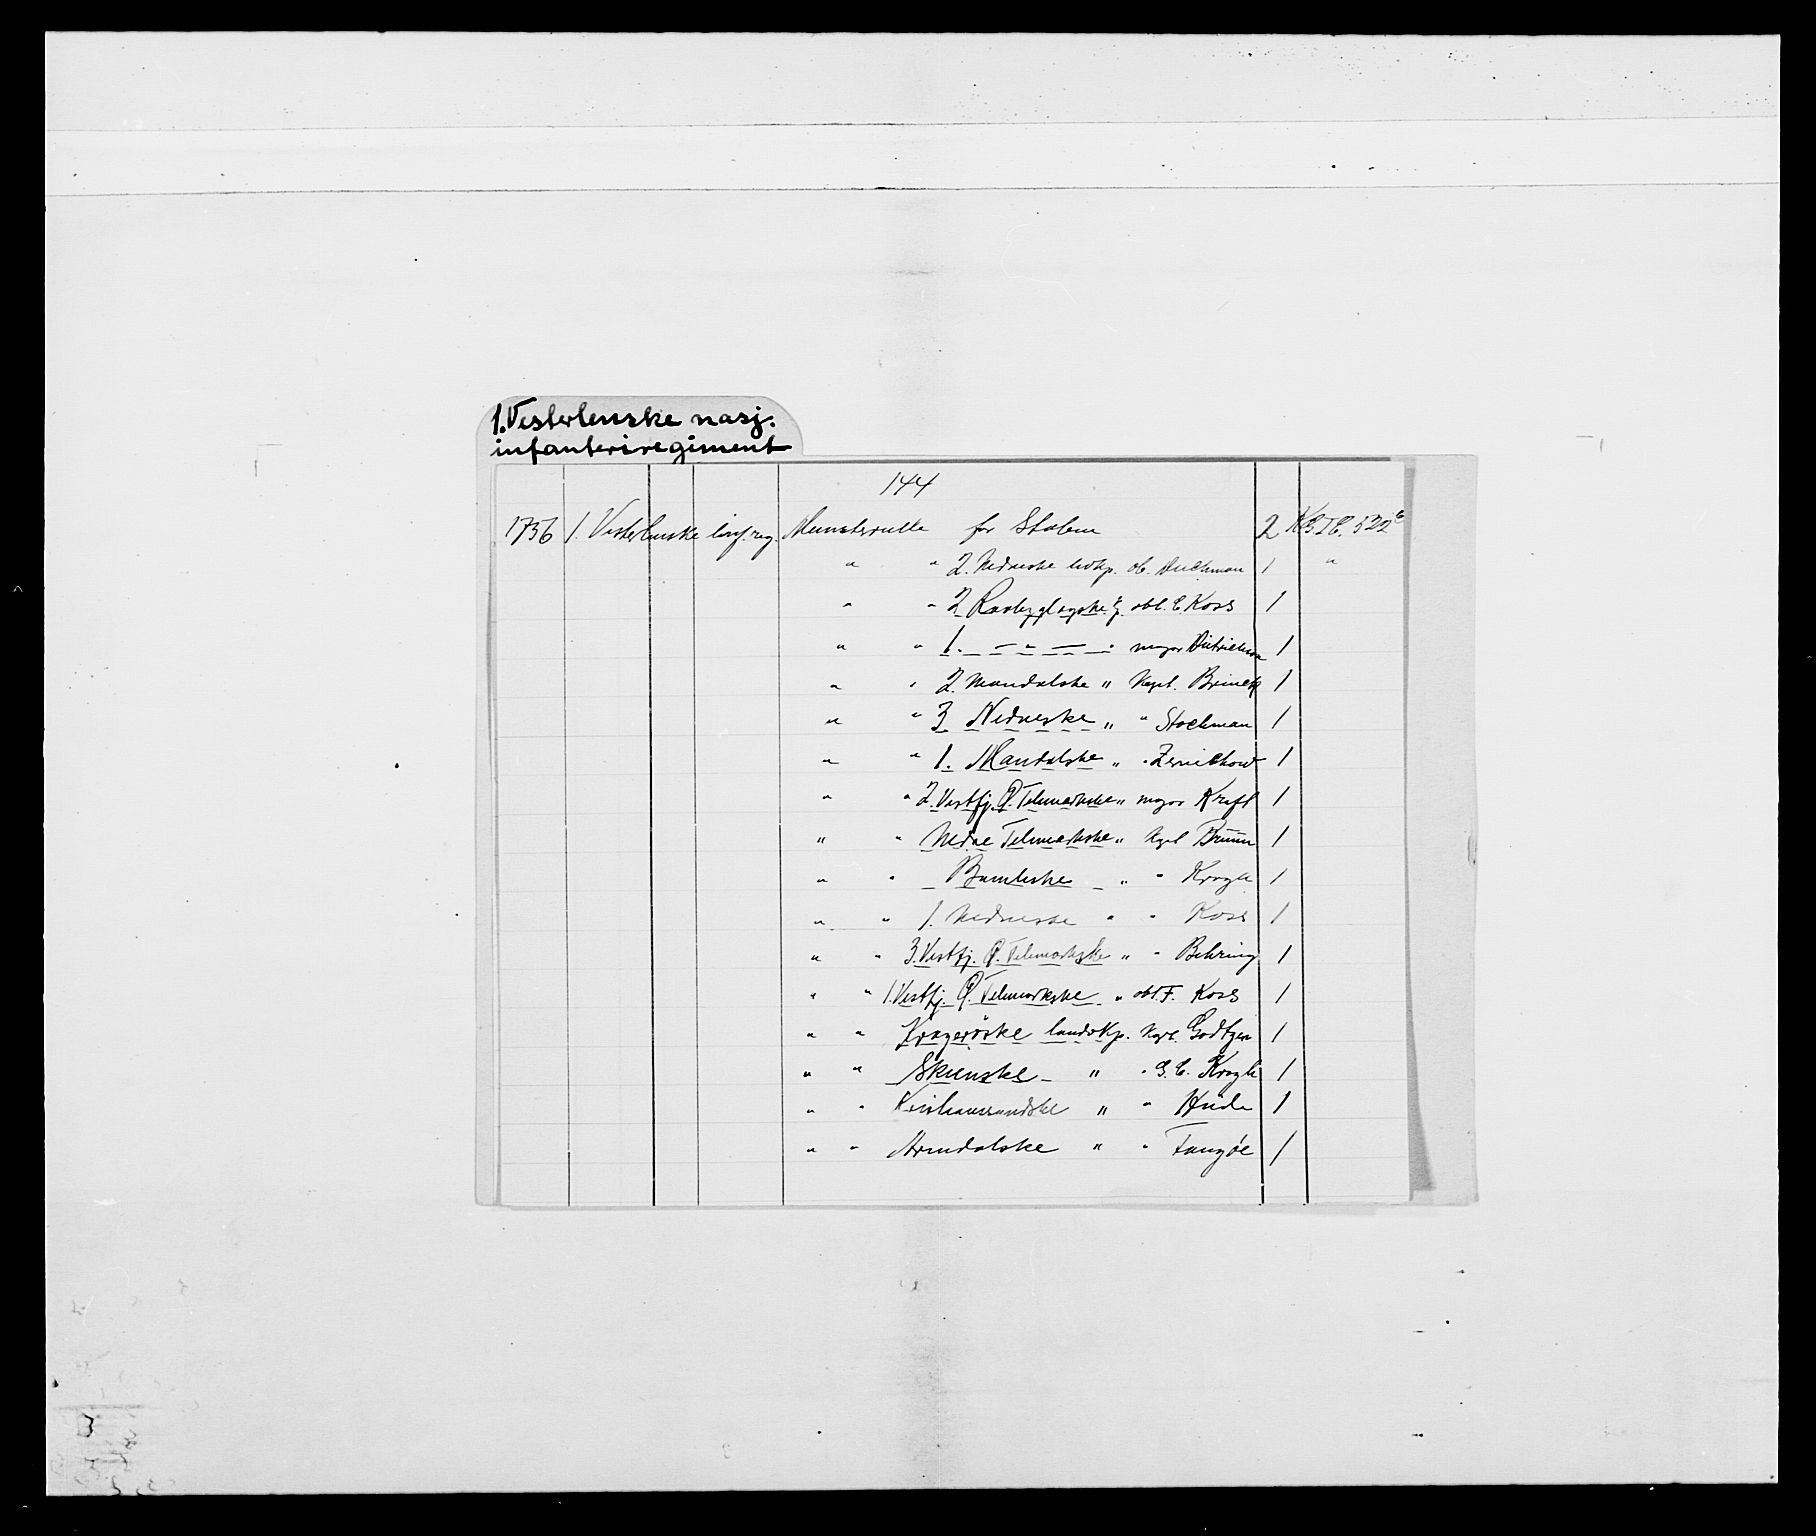 1. Vesterlenske nasj.
infanteriregiment
144
1756 1. Vesterlenske inf. reg. Munsterrulle for Staben 2
" " 2. Nedneske livkp. ob. 1 "
" " 2 Raabyglagske kp. obl. E. Koss 1
" " 1. — " — " major Ditrichson 1
" " 2. Mandalske " Kapt. Brinck 1
" " 3 Nedneske " " Stockman 1
" " 1. Mandalske " " Zernichow 1
" " 2. Vestfj. Ø. Telemarkske " major Kraft 1
" " Nedre Telemarkske " Kapt Bruun 1
" " Bambleske " " Krogh 1
" " 1. Nedneske " " Koss 1
" " 3. Vestfj. Ø. Telemarkske " " Behring 1
" " 1. Vestfj. Ø. Telemarkske " obl. F. Koss 1
" " Kragerøske landvkp. Kapt. Godtzen 1
" " Skienske " " G. C. Krogh 1
" " Kristianssandske " " Hude 1
" " Arendalske " " Fangøe 1